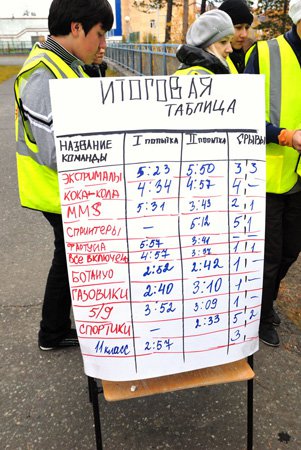 ИТОГОВАЯ
ТАБЛИЦА
НАЗВАНИЕ КОМАНДЫ I ПОПЫТКА II ПОПЫТКА СРЫВЫ
ЭКСТРИМАЛЫ 5:23 5:50 3 3
КОКА-КОЛА 4:34 4:57 4 –
MMS 5:31 3:43 2 1
СПРИНТЕРЫ – 5:12 5 1
ФАРТУНА 5:57 3:41
ВСЕ ВКЛЮЧЕНО 4:57
2:52 2:42 1 –
ГАЗОВИКИ 2:40 3:10 1 –
5/9 3:52 3:09
СПОРТИКИ – 2:33 5 2
11 класс 2:57 3